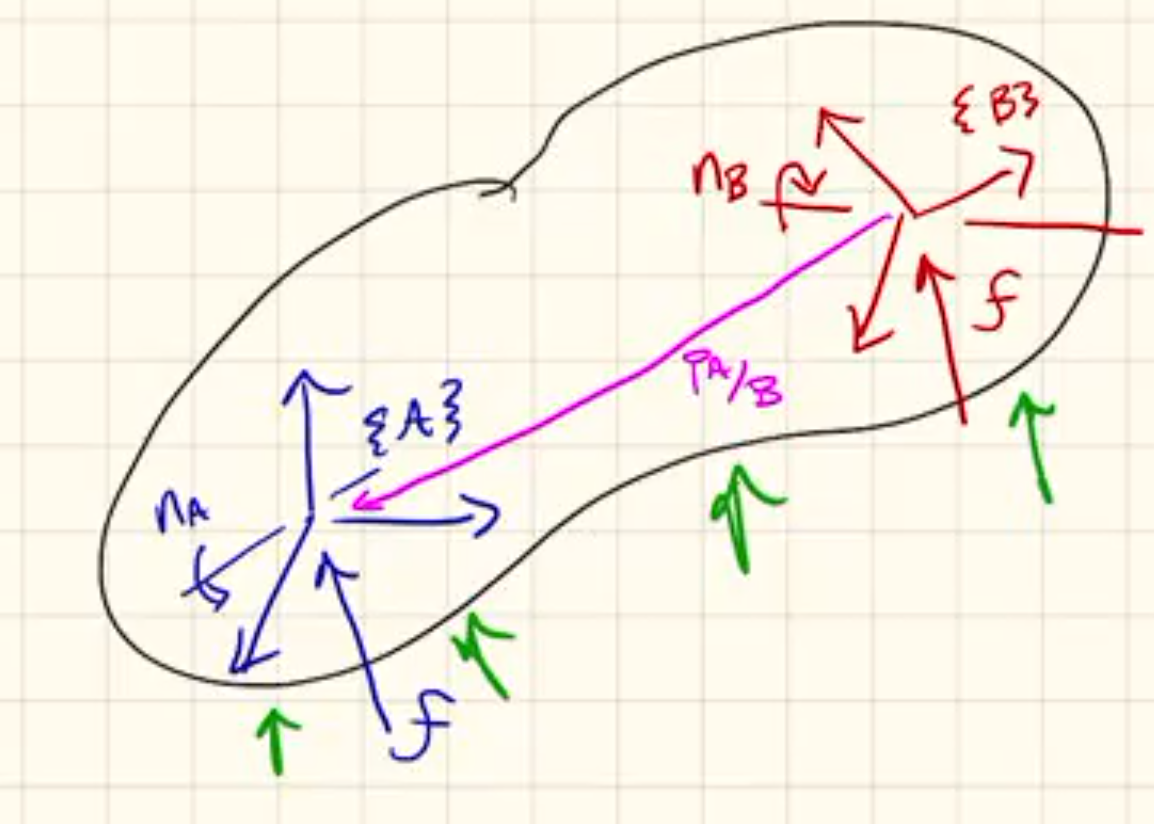 {B}
nB
f
PA/B
{A}
nA
f